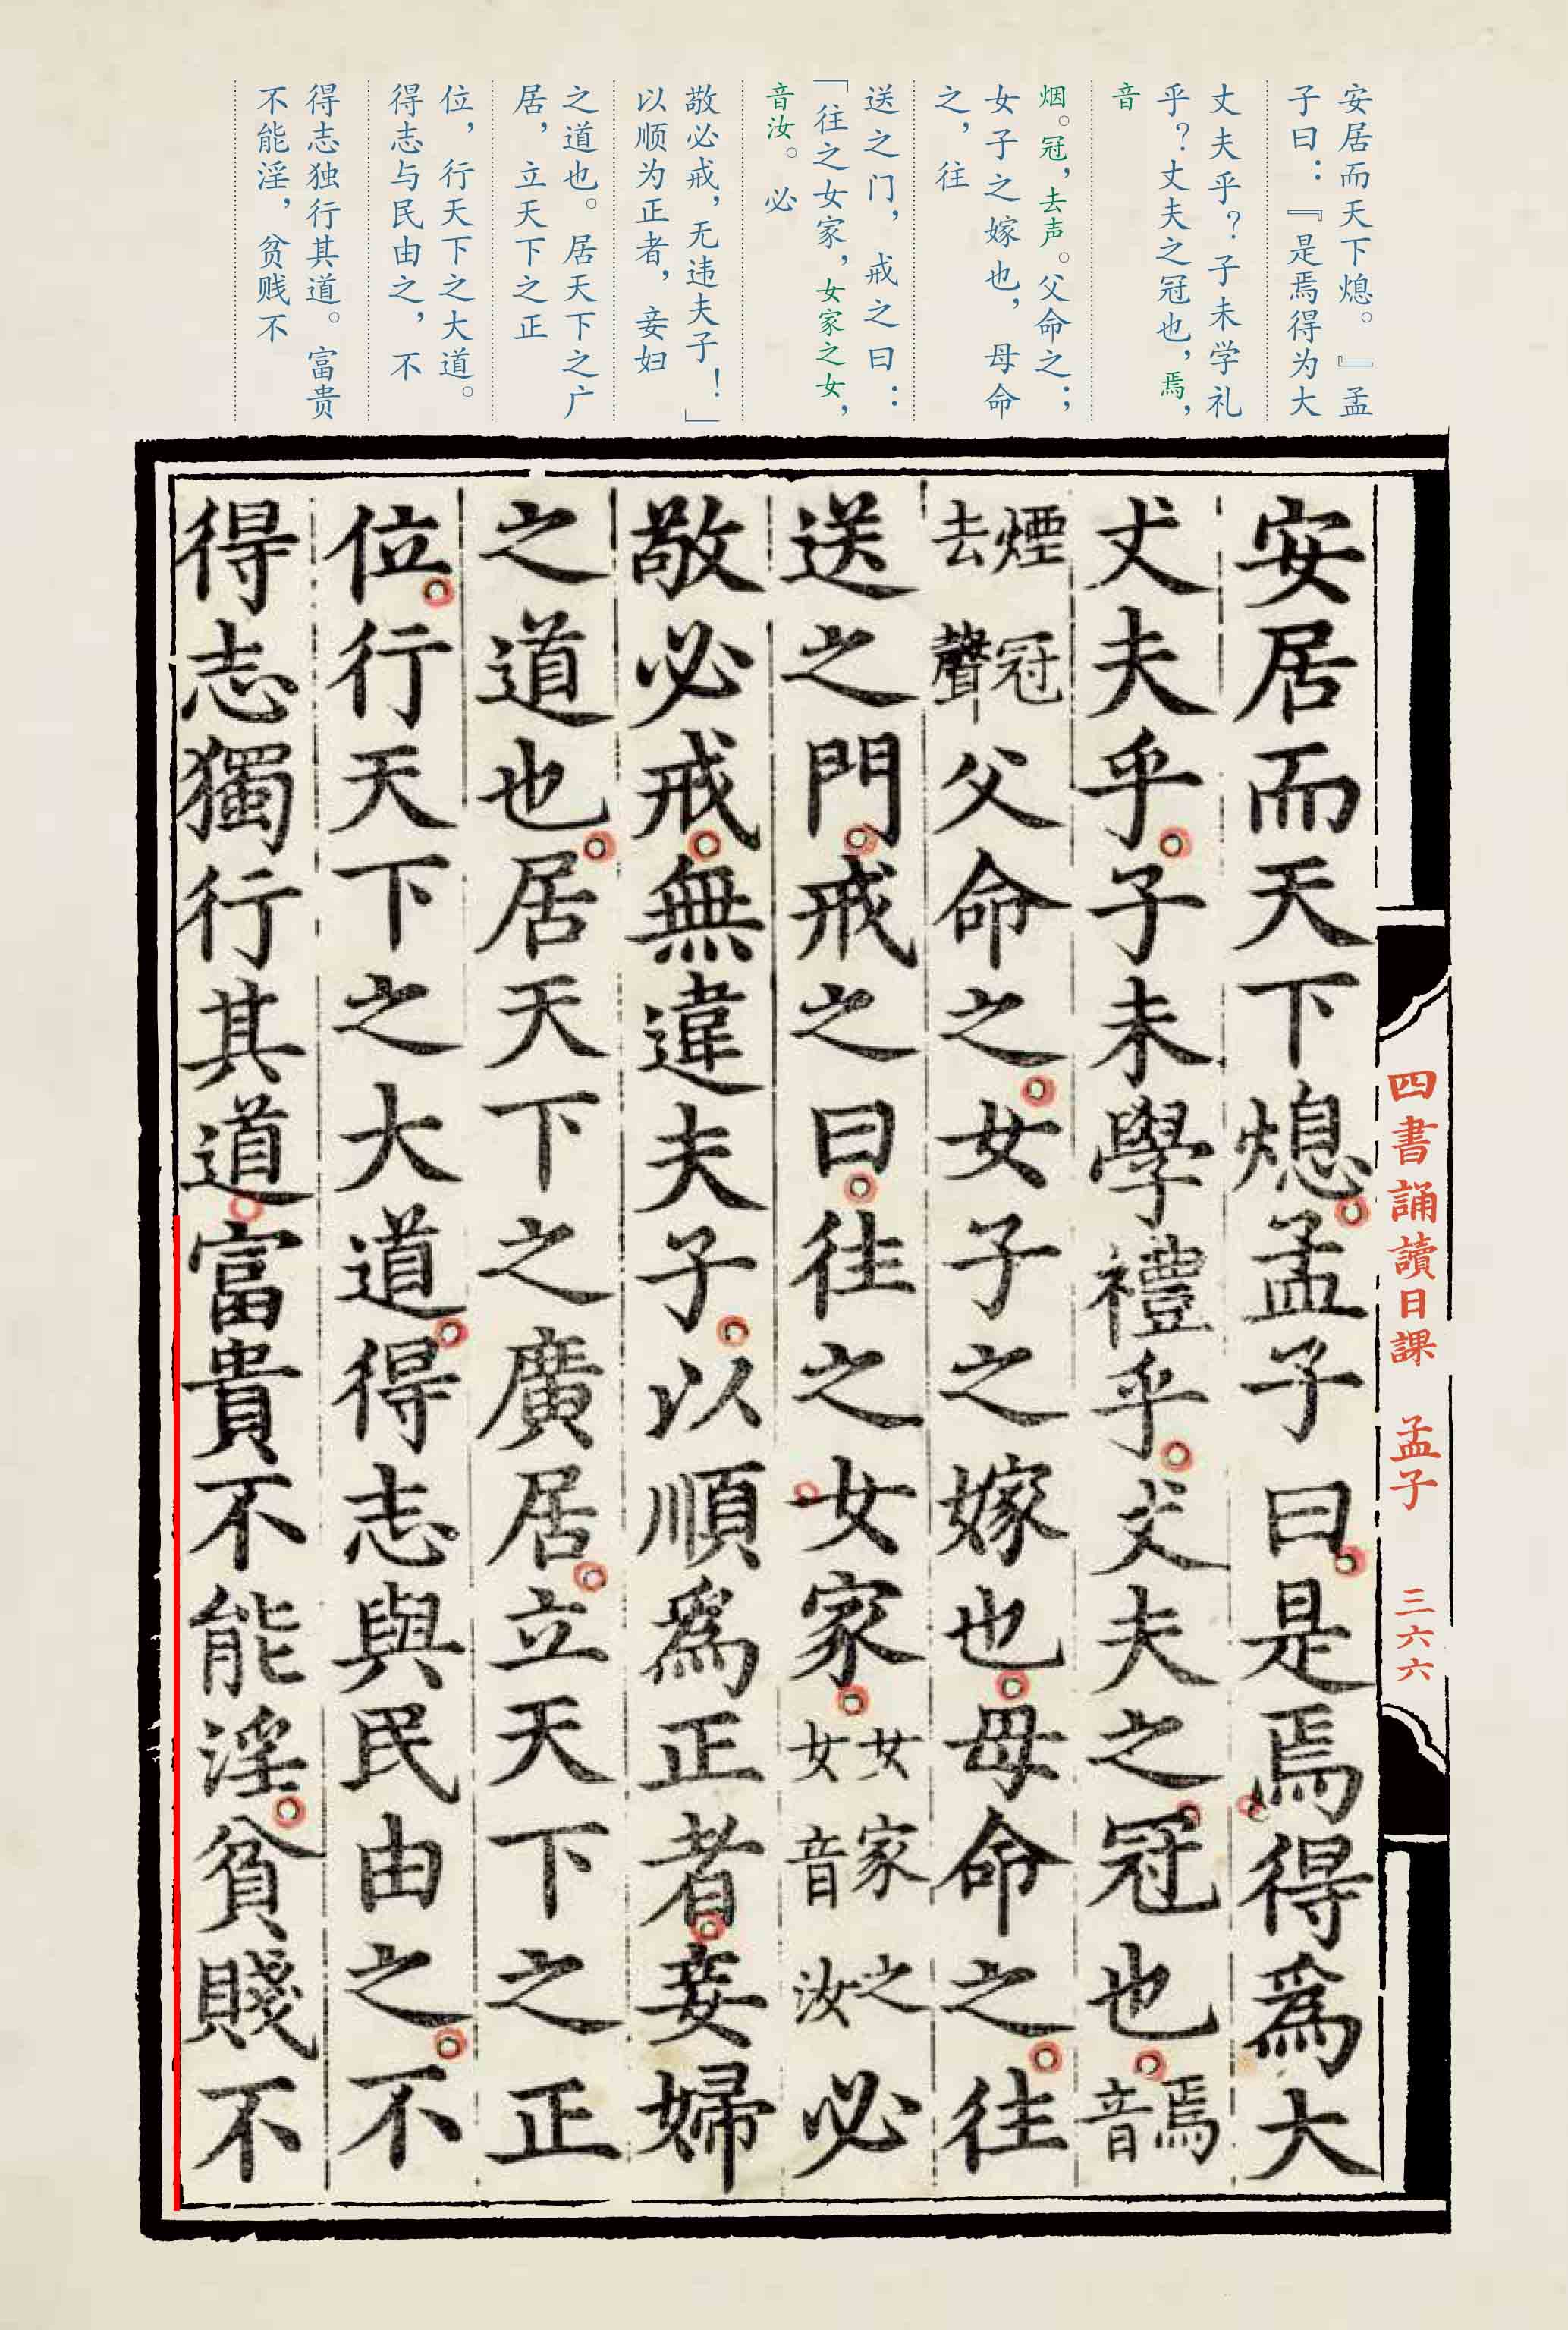 安居而天下熄。』孟
子曰：『是焉得为大
丈夫乎？子未学礼
乎？丈夫之冠也，焉，
音
烟。冠，去声。父命之；
女子之嫁也，母命
之，往
送之门，戒之曰：
「往之女家，女家之女，
音汝。必
敬必戒，无违夫子！」
以顺为正者，妾妇
之道也。居天下之广
居，立天下之正
位，行天下之大道。
得志与民由之，不
得志独行其道。富贵
不能淫，贫贱不
四書誦讀日課 孟子 三六六
安居而天下熄孟子曰是焉得爲大
丈夫乎子未學禮乎丈夫之冠也焉音
煙冠去聲父命之女子之嫁也母命之往
送之門戒之曰往之女家女家之女音汝必
敬必戒無違夫子以順爲正者妾婦
之道也居天下之廣居立天下之正
位行天下之大道得志與民由之不
得志獨行其道富貴不能淫貧賤不